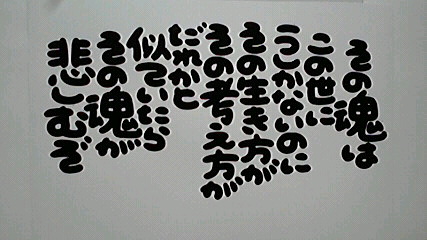 その魂は
この世に
うしかないのに
その生き方が
その考え方が
だれかと
似ていたら
その魂が
悲しむぞ